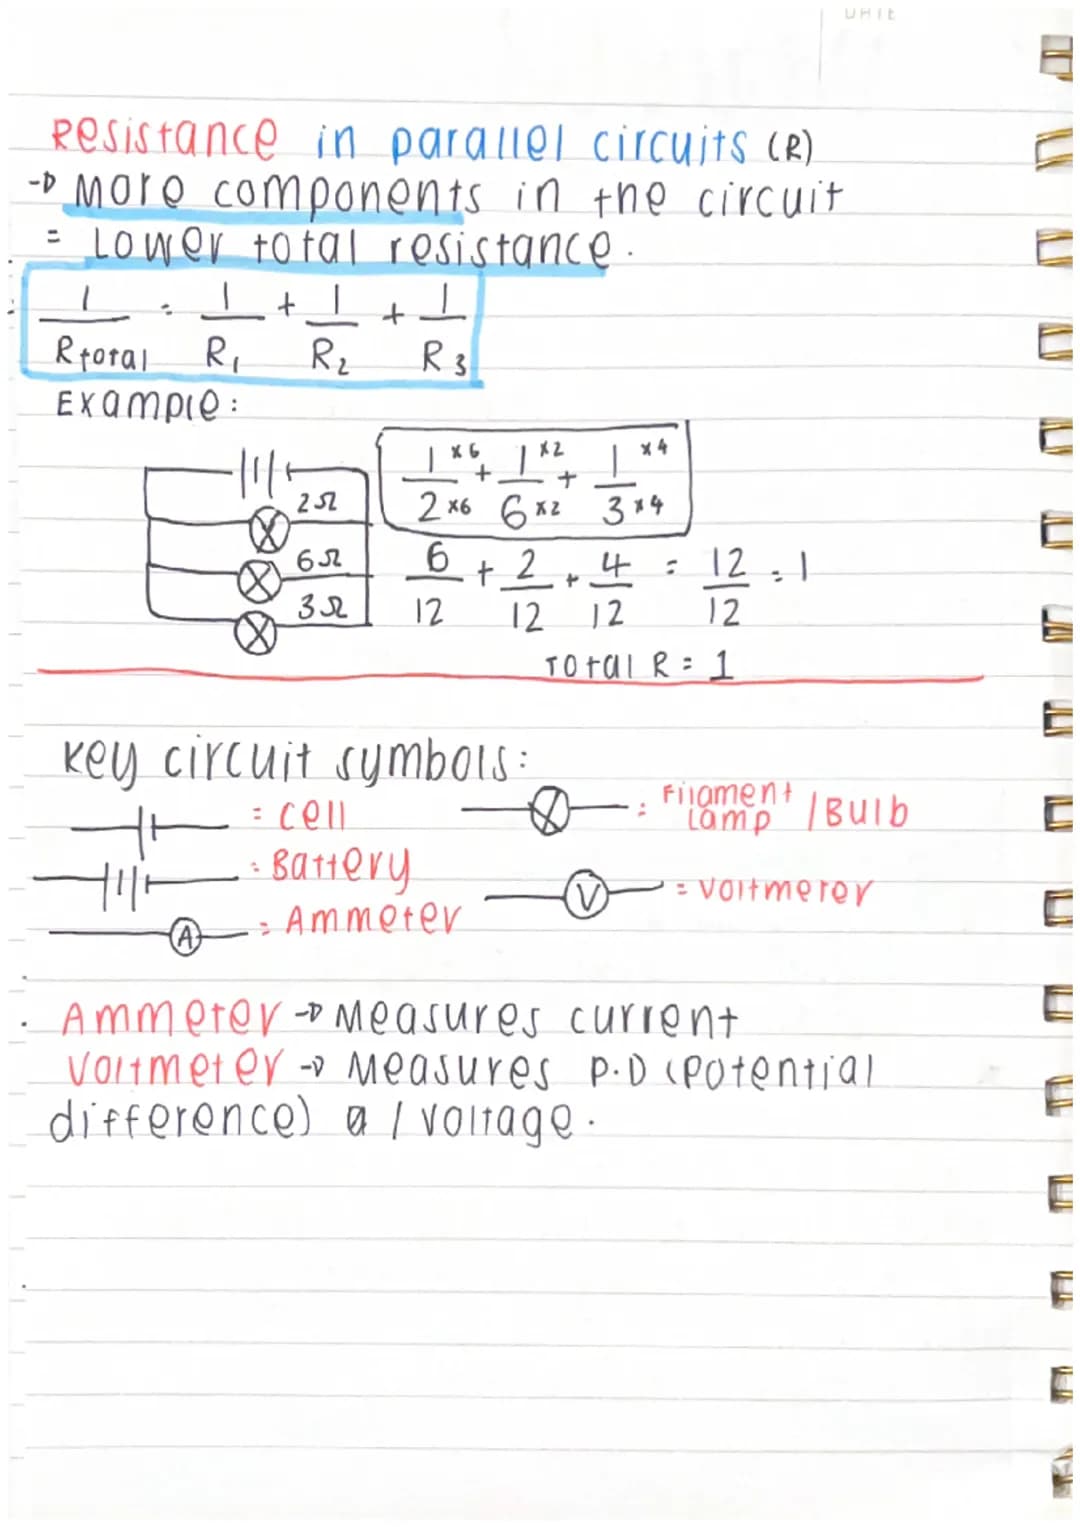 DATE
Resistance in parallel circuits (R)
→ More components in the circuit
= Lower total resistance.
1/Rtotal = 1/R₁ + 1/R₂ + 1/R₃
Example:
2Ω
6Ω
3Ω
1 ×6 / 2 ×6 + 1 ×2 / 6 ×2 + 1 ×4 / 3 ×4
6/12 + 2/12 + 4/12 = 12/12 = 1
Total R = 1
Key circuit symbols:
= Cell
= Filament Lamp / Bulb
= Battery
V = Voltmeter
A = Ammeter
Ammeter → Measures current
Voltmeter → Measures P.D (Potential
difference) / voltage.